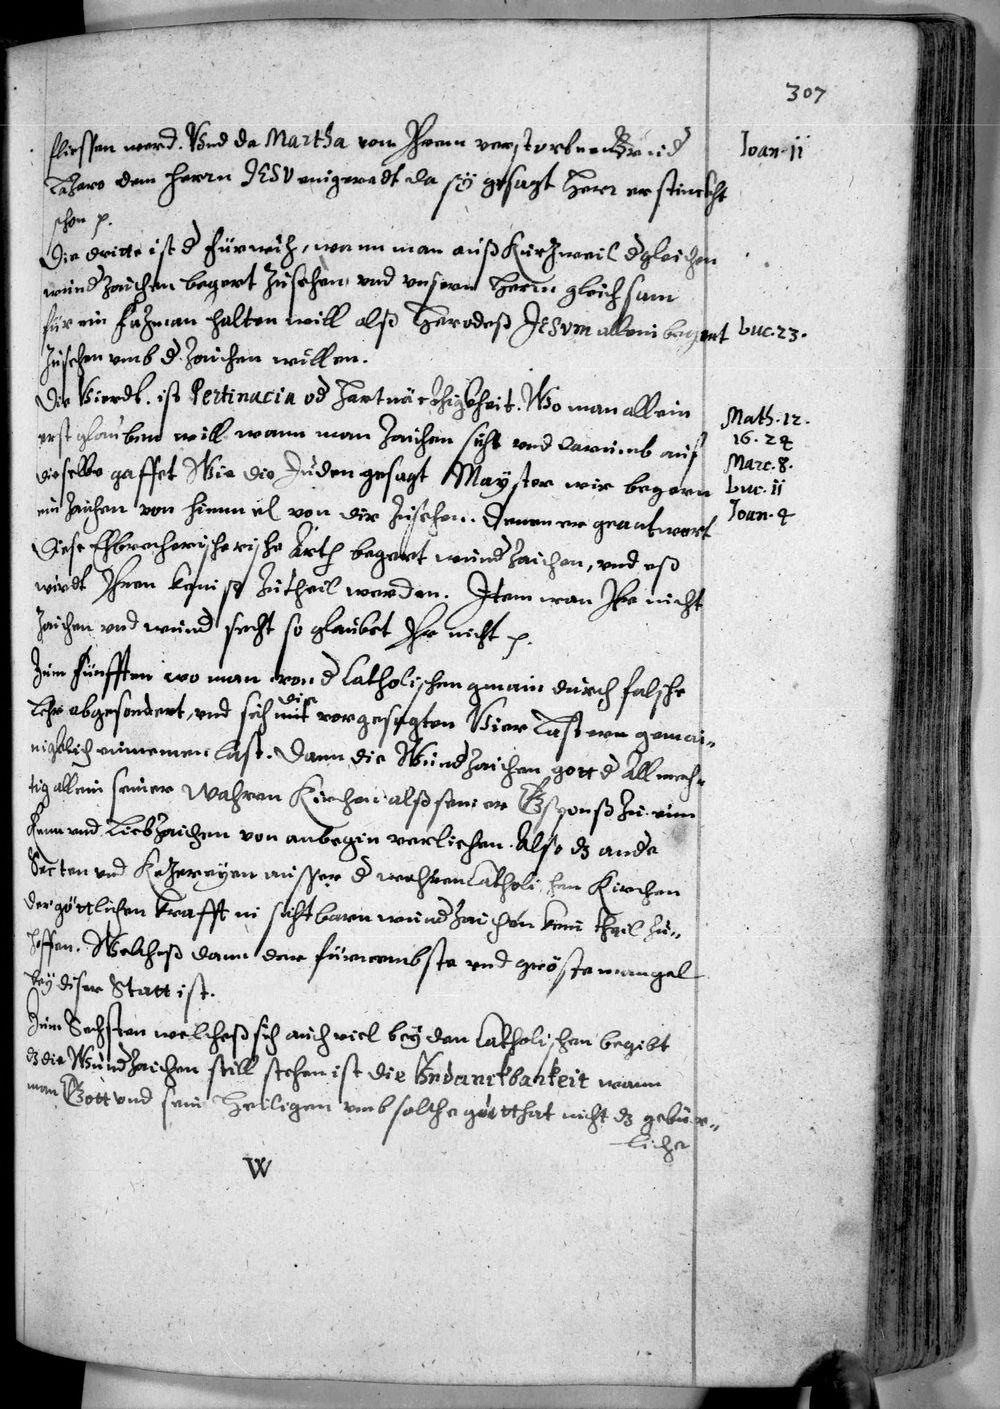 307
fliessen werd. Vnd da Martha von Ihrem verstorbnen Brud
Lazaro dem herrn JESV eingeredt da sÿ gesagt Herr er stinckht
schon p.
Joan. 11
Die dritte ist d fürwiz, wann man auß Kurzweil dgleichen
wundzaichen begert zusehen vnd vnsern Herrn gleichsam
für ein fazman halten will alß Herodeß JESVM allein begert
zusehen vmb d. Zaichen willen.
Luc. 23.
Die Vierdt. ist Pertinacia od Hartnäckhigkheit. Wo man allein
erst glauben will wann man Zaichen sicht vnd darumb auf
dieselbe gaffet Wie die Juden gesagt Mayster wir begern
ein Zaichen von himmel von dir zusehen. Denen er geantwort
Diese Ehbrecherischerische Arth begert wundzaichen, vnd eß
wirdt Ihnen kheniß zutheil werden. Item wan Ihr nicht
Zaichen vnd wund secht so glaubet Ihr nicht p.
Math. 12.
16. 24
Marc. 8.
Luc. 11
Joan. 4
Zum Fünfften wo man von d Catholischen gmain durch falsche
Lehr abgesondert, vnd sich mit die vorgesagten Vier Lastern gemai-
nigkhlich einnemen last. Dann die Wundzaichen gott d Allmech-
tig allein seiner Wahren Kirchen alß seiner Gsponß zu eim
Kenn vnd Liebzaichen von anbegin verliehen. Also dz ande
Secten vnd Kezereyen ausser d wahren Catholischen Kirchen
der göttlichen Krafft in sichtbarn wundzaichen kein theil zu-
hoffen. Welcheß dann der fürnembste vnd gröste mangel
bey diser Statt ist.
Zum Sechsten welcheß sich auch viel beÿ den Catholischen begibt
dz die Wundzaichen still stehen ist die Vndanckbarkeit wann
man Gott vnd sein Heiligen vmb solche gutthat nicht dz gebür-
licher
W